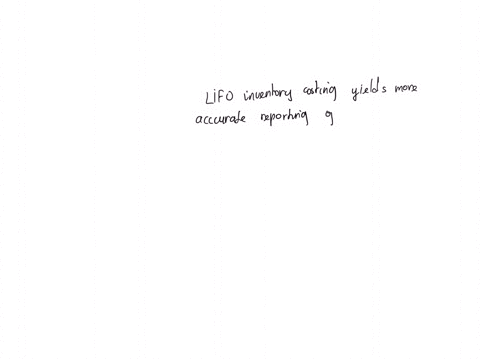 LIFO inventory costing yields more
accurate reporting of